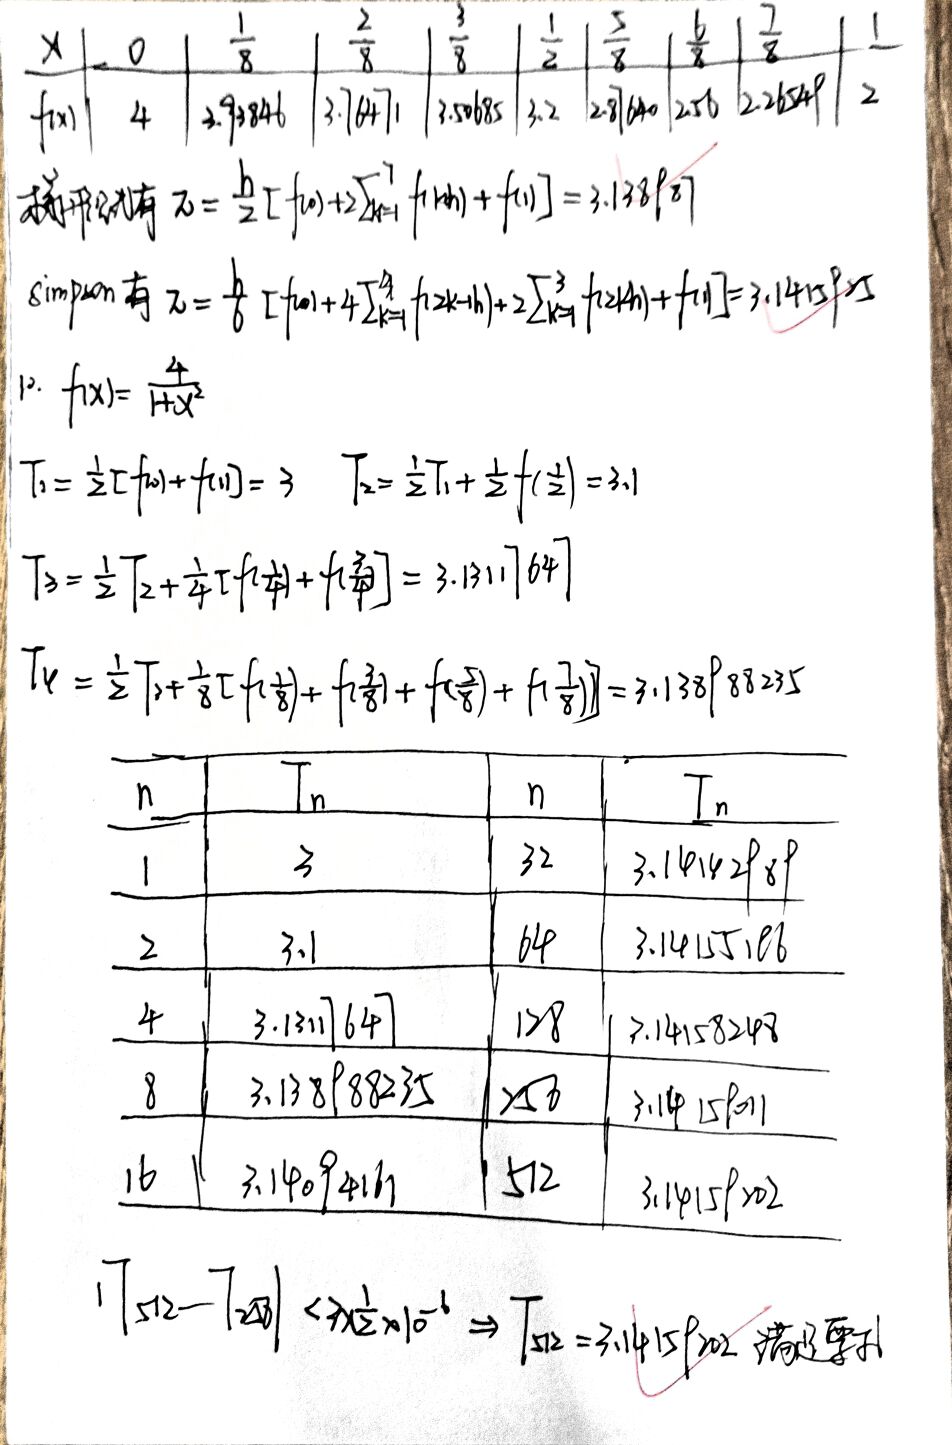 x | 0 | 1/8 | 2/8 | 3/8 | 1/2 | 5/8 | 6/8 | 7/8 | 1
f(x) | 4 | 3.93846 | 3.76471 | 3.50685 | 3.2 | 2.87640 | 2.56 | 2.26549 | 2
梯形公式有 π = h/2 [f(0)+2∑_{k=1}^{7} f(kh)+f(1)] = 3.138987
simpson有 π = h/6 [f(0)+4∑_{k=1}^{4} f(2k-1h)+2∑_{k=1}^{3} f(2kh)+f(1)] = 3.1415925
12. f(x) = 4/(1+x²)
T₁ = 1/2[f(0)+f(1)] = 3 T₂ = 1/2T₁ + 1/2f(1/2) = 3.1
T₃ = 1/2T₂ + 1/4[f(1/4)+f(3/4)] = 3.13117647
T₄ = 1/2T₃ + 1/8[f(1/8)+f(3/8)+f(5/8)+f(7/8)] = 3.138988235
n | Tn | n | Tn
1 | 3 | 32 | 3.14142989
2 | 3.1 | 64 | 3.14155196
4 | 3.13117647 | 128 | 3.14158248
8 | 3.138988235 | 256 | 3.14159011
16 | 3.14094161 | 512 | 3.14159202
|T₅₁₂ - T₂₅₆| < 3×1/2×10⁻⁶ ⇒ T₅₁₂ = 3.14159202 满足要求